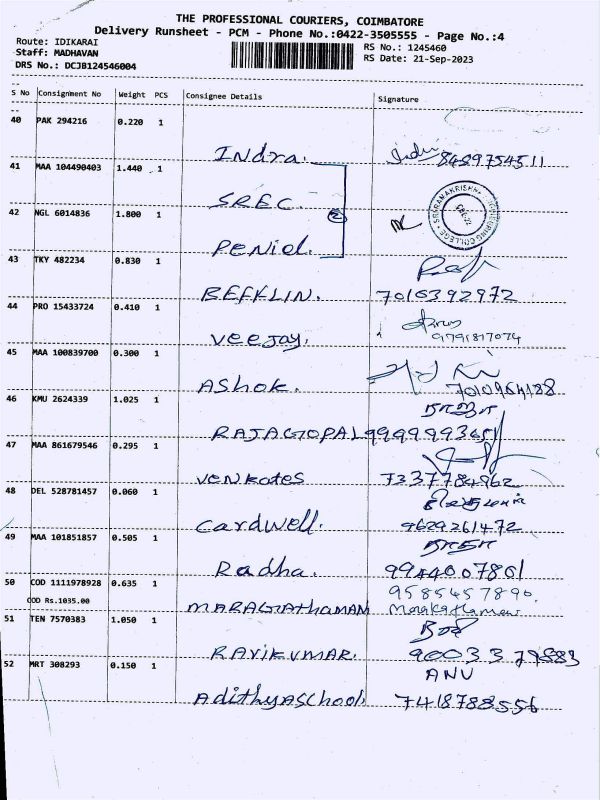 THE PROFESSIONAL COURIERS, COIMBATORE
Delivery Runsheet - PCM - Phone No.:0422-3505555 - Page No.:4
Route: IDIKARAI
RS No.: 1245460
Staff: MADHAVAN
RS Date: 21-Sep-2023
DRS No.: DCJB124546004
S No Consignment No Weight PCS Consignee Details Signature
40 PAK 294216 0.220 1
Indra. 8489754511
41 MAA 104490403 1.440 1
SREC.
42 NGL 6014836 1.800 1
Peniel.
43 TKY 482234 0.830 1
BEFKLIN. 7016392972
44 PRO 15433724 0.410 1
Veejay. 9791817074
45 MAA 100839700 0.300 1
Ashok. 7010964188
46 KMU 2624339 1.025 1
ராஜா
RAJAGOPAL
47 MAA 861679546 0.295 1
Venkates 7337784962
48 DEL 528781457 0.060 1
Cardwell. 9629261472
49 MAA 101851857 0.505 1
ராதா
Radha. 9944007861
50 COD 1111978928 0.635 1
COD Rs.1035.00
9585457890.
MARAGATHAMANI
51 TEN 7570383 1.050 1
ரவி
RAVIKUMAR.
52 MRT 308293 0.150 1
ANU
Adithya School. 7418788556